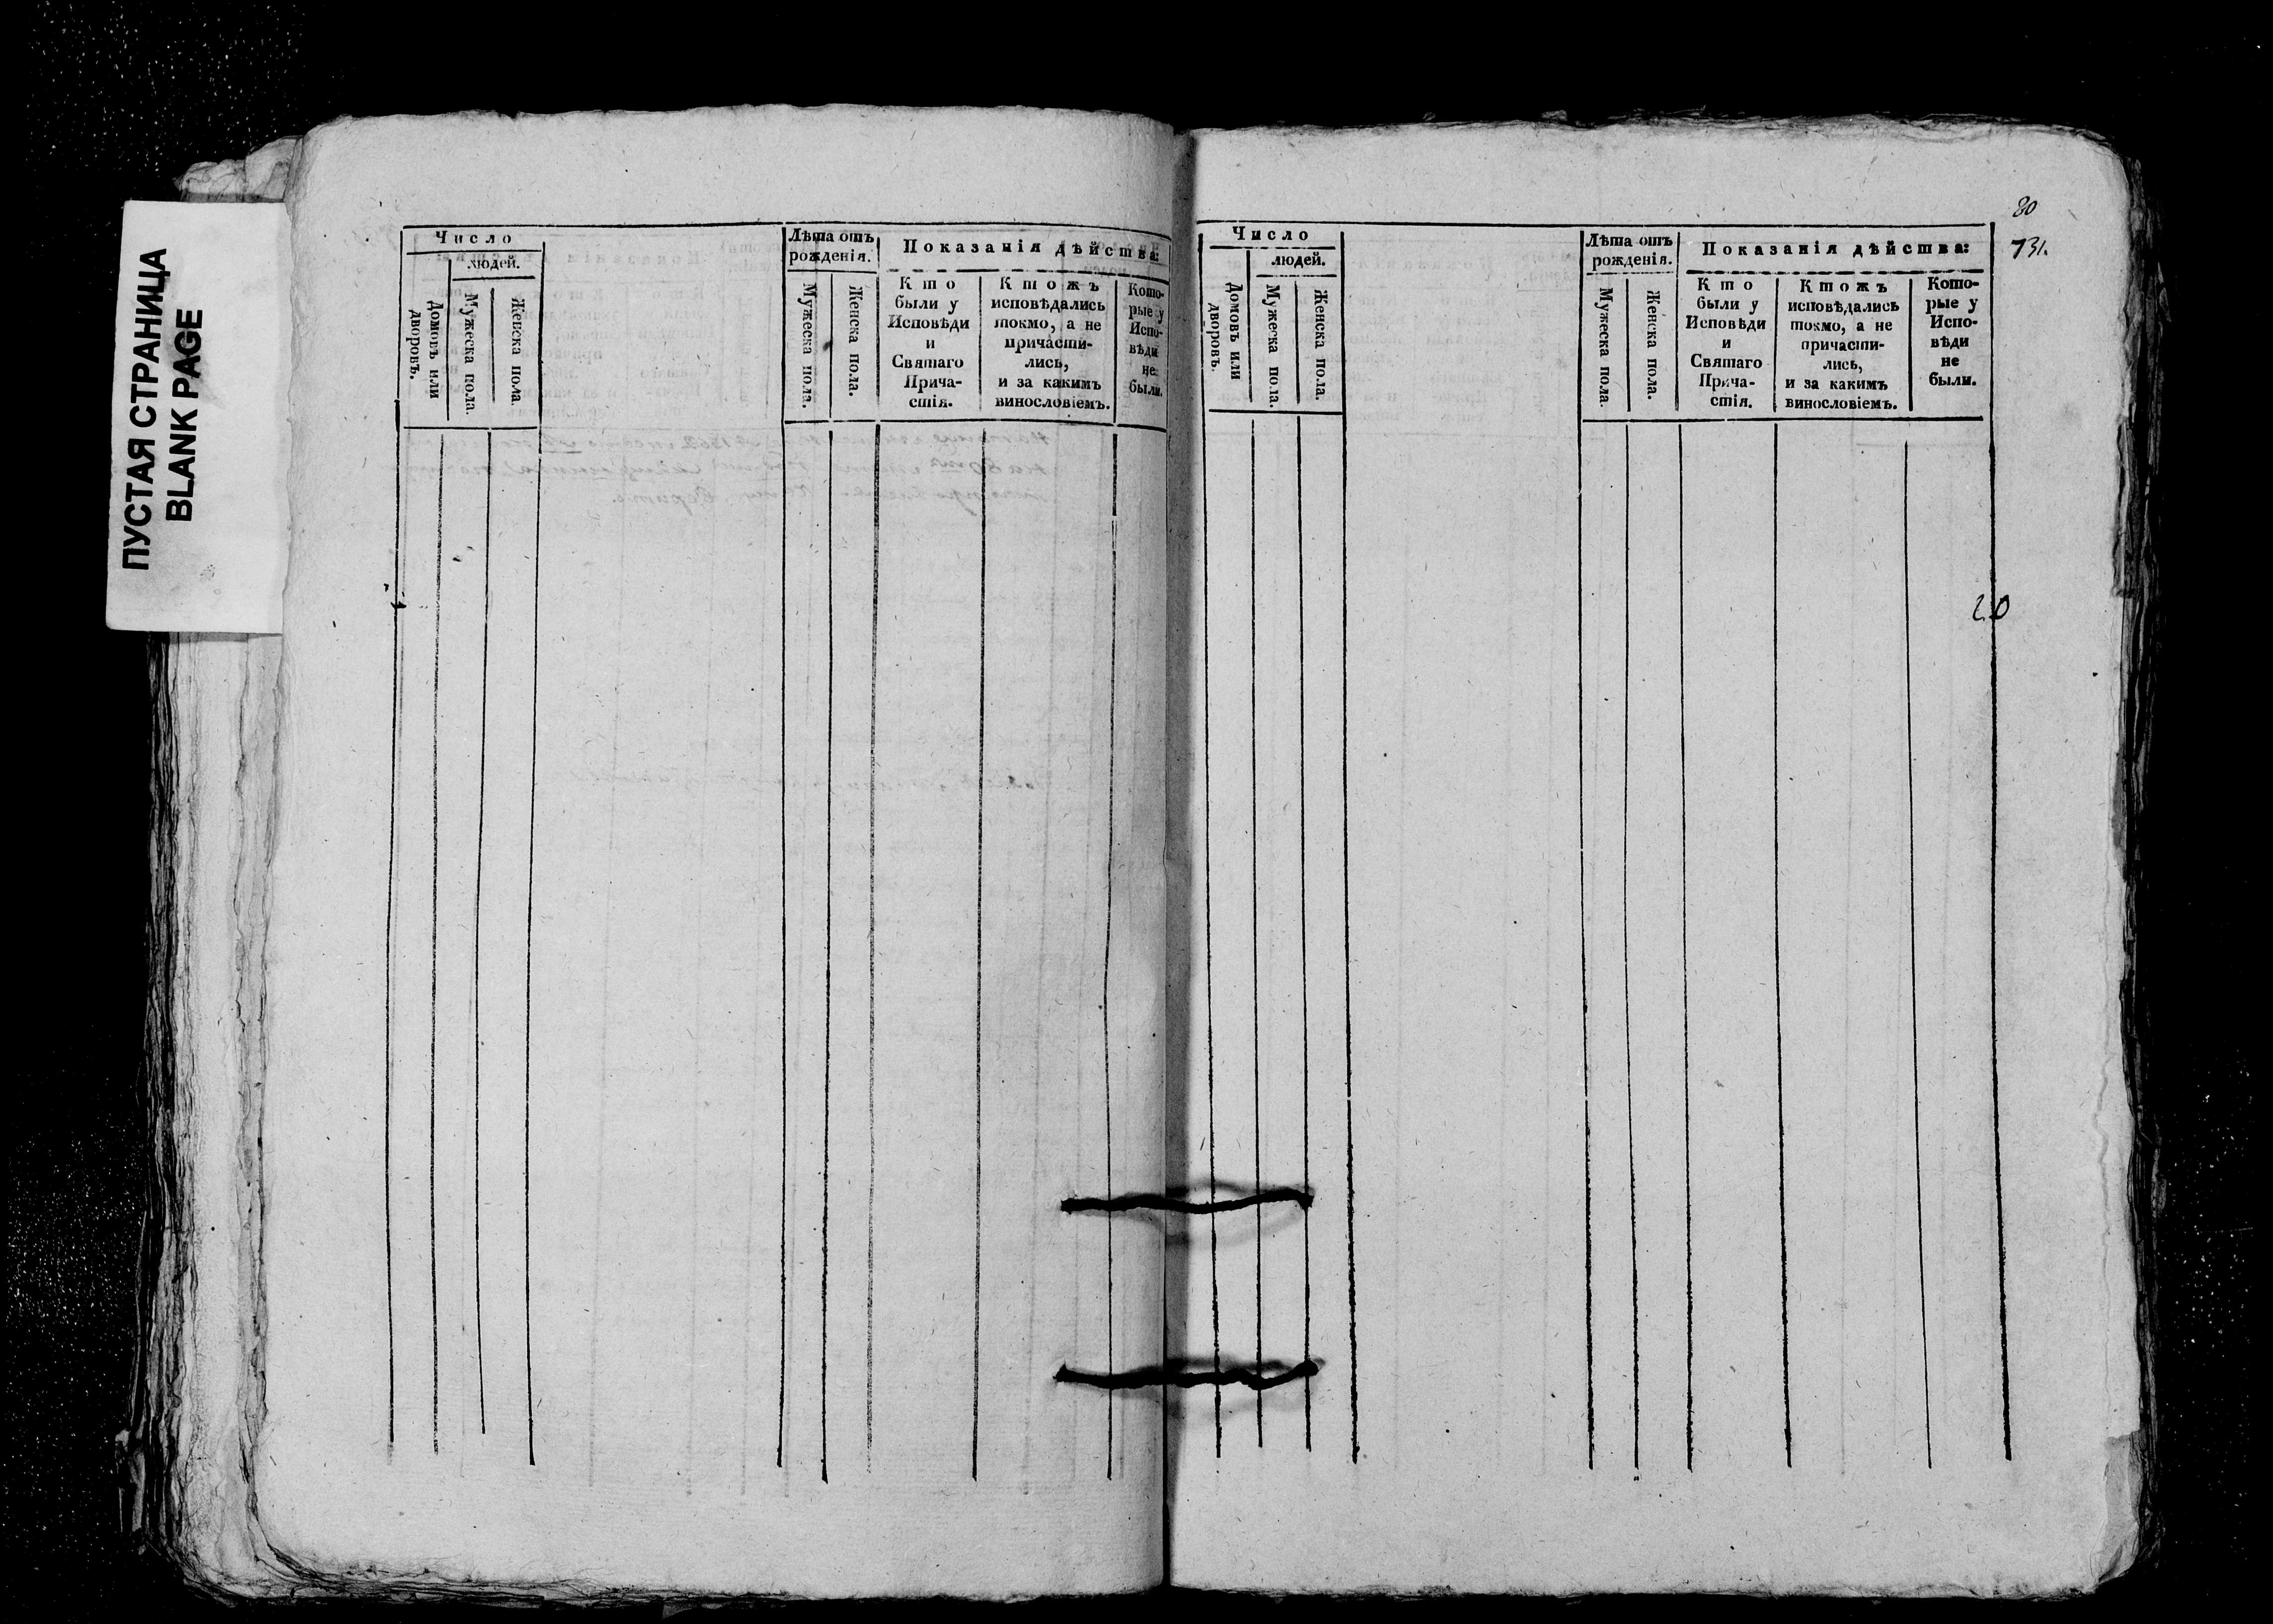 ПУСТАЯ СТРАНИЦА
BLANK PAGE
Число
людей.
Домовъ или
дворовъ.
Мужеска пола.
Женска пола.
Лѣта отъ
рожденія.
Мужеска пола.
Женска пола.
Показанія дѣйства:
Кто
были у
Исповѣди
и
Святаго
Прича-
стія.
Ктожъ
исповѣдались
токмо, а не
причасти-
лись,
и за какимъ
винословіемъ.
Кото-
рые у
Испо-
вѣди
не
были.
80
731.
Число
людей.
Домовъ или
дворовъ.
Мужеска пола.
Женска пола.
Лѣта отъ
рожденія.
Мужеска пола.
Женска пола.
Показанія дѣйства:
Кто
были у
Исповѣди
и
Святаго
Прича-
стія.
Ктожъ
исповѣдались
токмо, а не
причасти-
лись,
и за какимъ
винословіемъ.
Кото-
рые у
Испо-
вѣди
не
были.
20